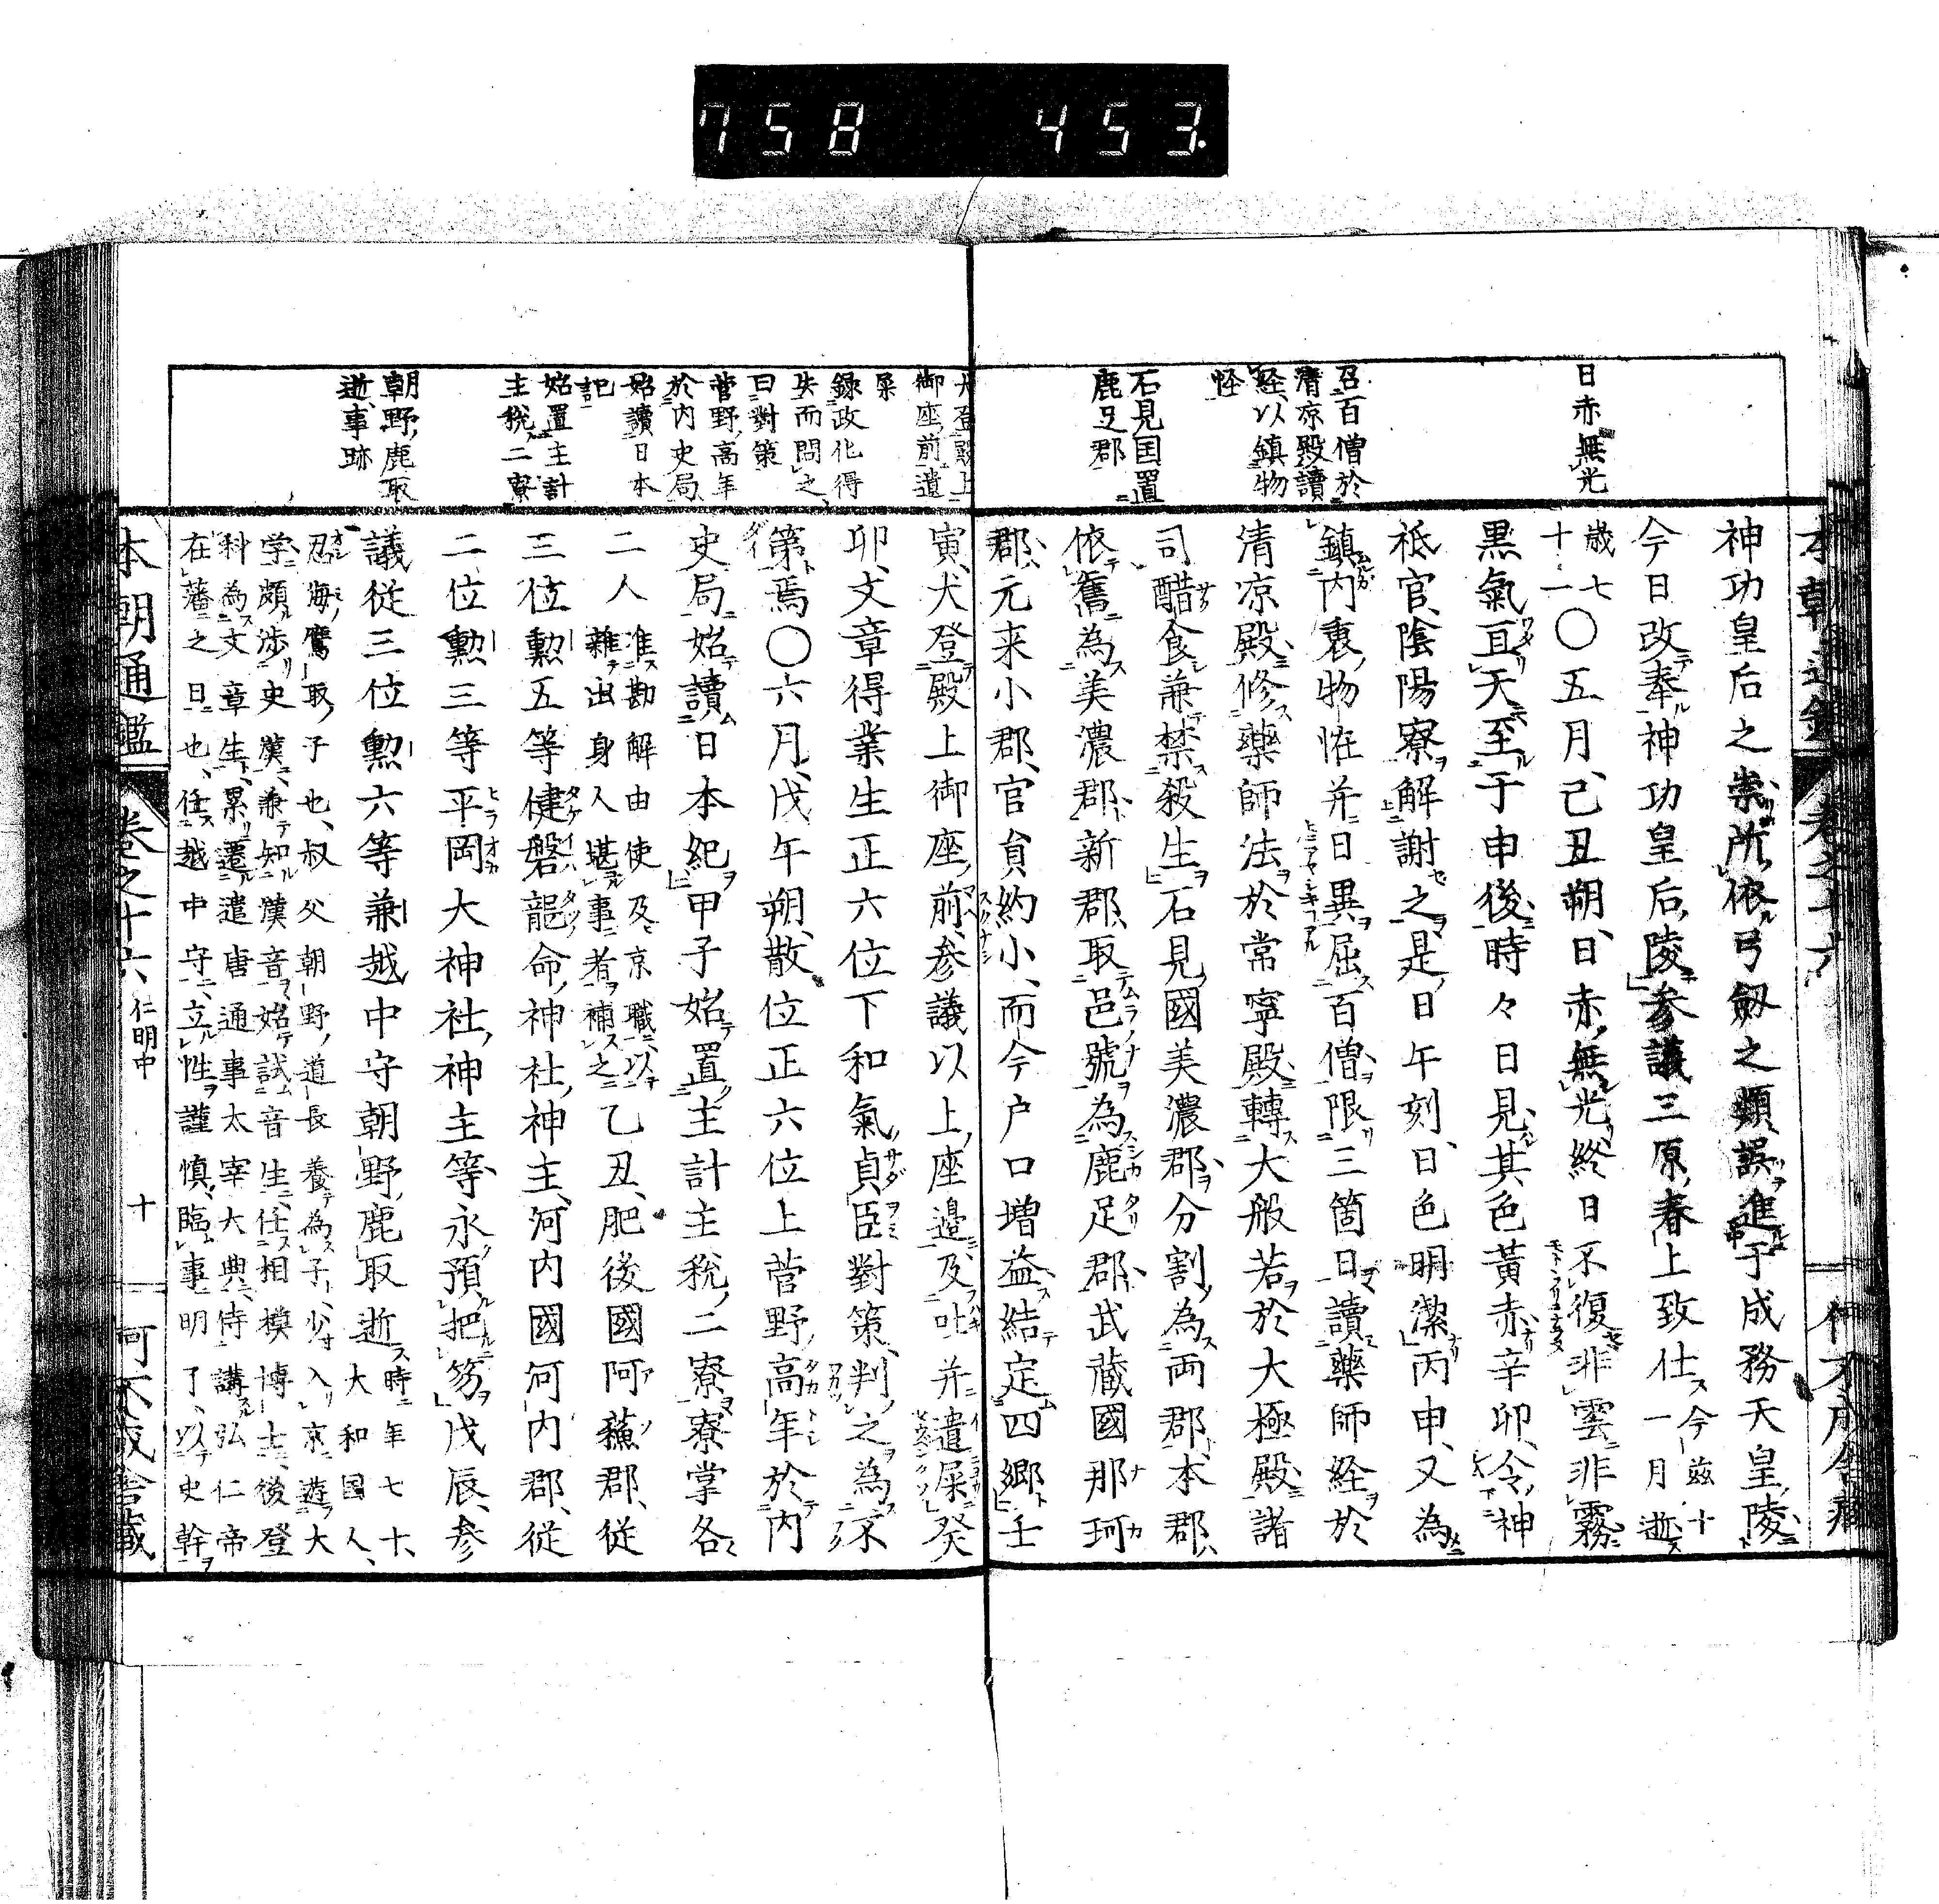 758 453.
日赤無光
召百僧於
清凉殿讀
経以鎮物
怪
石見国置
鹿足郡
神功皇后之崇所依弓劔之類誤進于成務天皇陵
今日改奉神功皇后陵参議三原春上致仕今茲十一月逝
歳七十一〇五月己丑朔日赤無光終日不復非雲非霧
黒氣亘天至于申後時々日見其色黃赤辛卯令神
祗官陰陽寮解謝之是日午刻日色明潔丙申又為
鎮内裏物恠并日異屈百僧限三箇日讀藥師経於
清凉殿修藥師法於常寧殿轉大般若於大極殿諸
司醋食兼禁殺生石見國美濃郡分割為両郡本郡
依舊為美濃郡新郡取邑號為鹿足郡武藏國那珂
郡元来小郡官貟約小而今户口增益結定四郷壬
犬登殿上
御座前遺
屎
録政化得
失而問之
曰對策
菅野高年
於内史局
始讀日本
記
始置主計
主稅二寮
朝野鹿取
逝事跡
寅犬登殿上御座前参議以上座邊及吐并遺屎癸
卯文章得業生正六位下和氣貞臣對策判之為不
第焉〇六月戊午朔散位正六位上菅野高年於内
史局始讀日本紀甲子始置主計主稅二寮寮掌各
二人准勘解由使及京職以雜出身人堪事者補之乙丑肥後國阿蘓郡従
三位勲五等健磐龍命神社神主河内國河内郡従
二位勲三等平岡大神社神主等永預把笏戊辰参
議従三位勲六等兼越中守朝野鹿取逝時年七十大和国人
忍海鷹取子也叔父朝野道長養為子少入京遊大
学頗渉史漢兼知漢音始試音生任相模博士後登
科為文章生累遷遣唐通事太宰大典侍講弘仁帝
在藩之日也任越中守立性謹慎臨事明了以史幹
本朝通鑑 卷之十六 仁明中 十